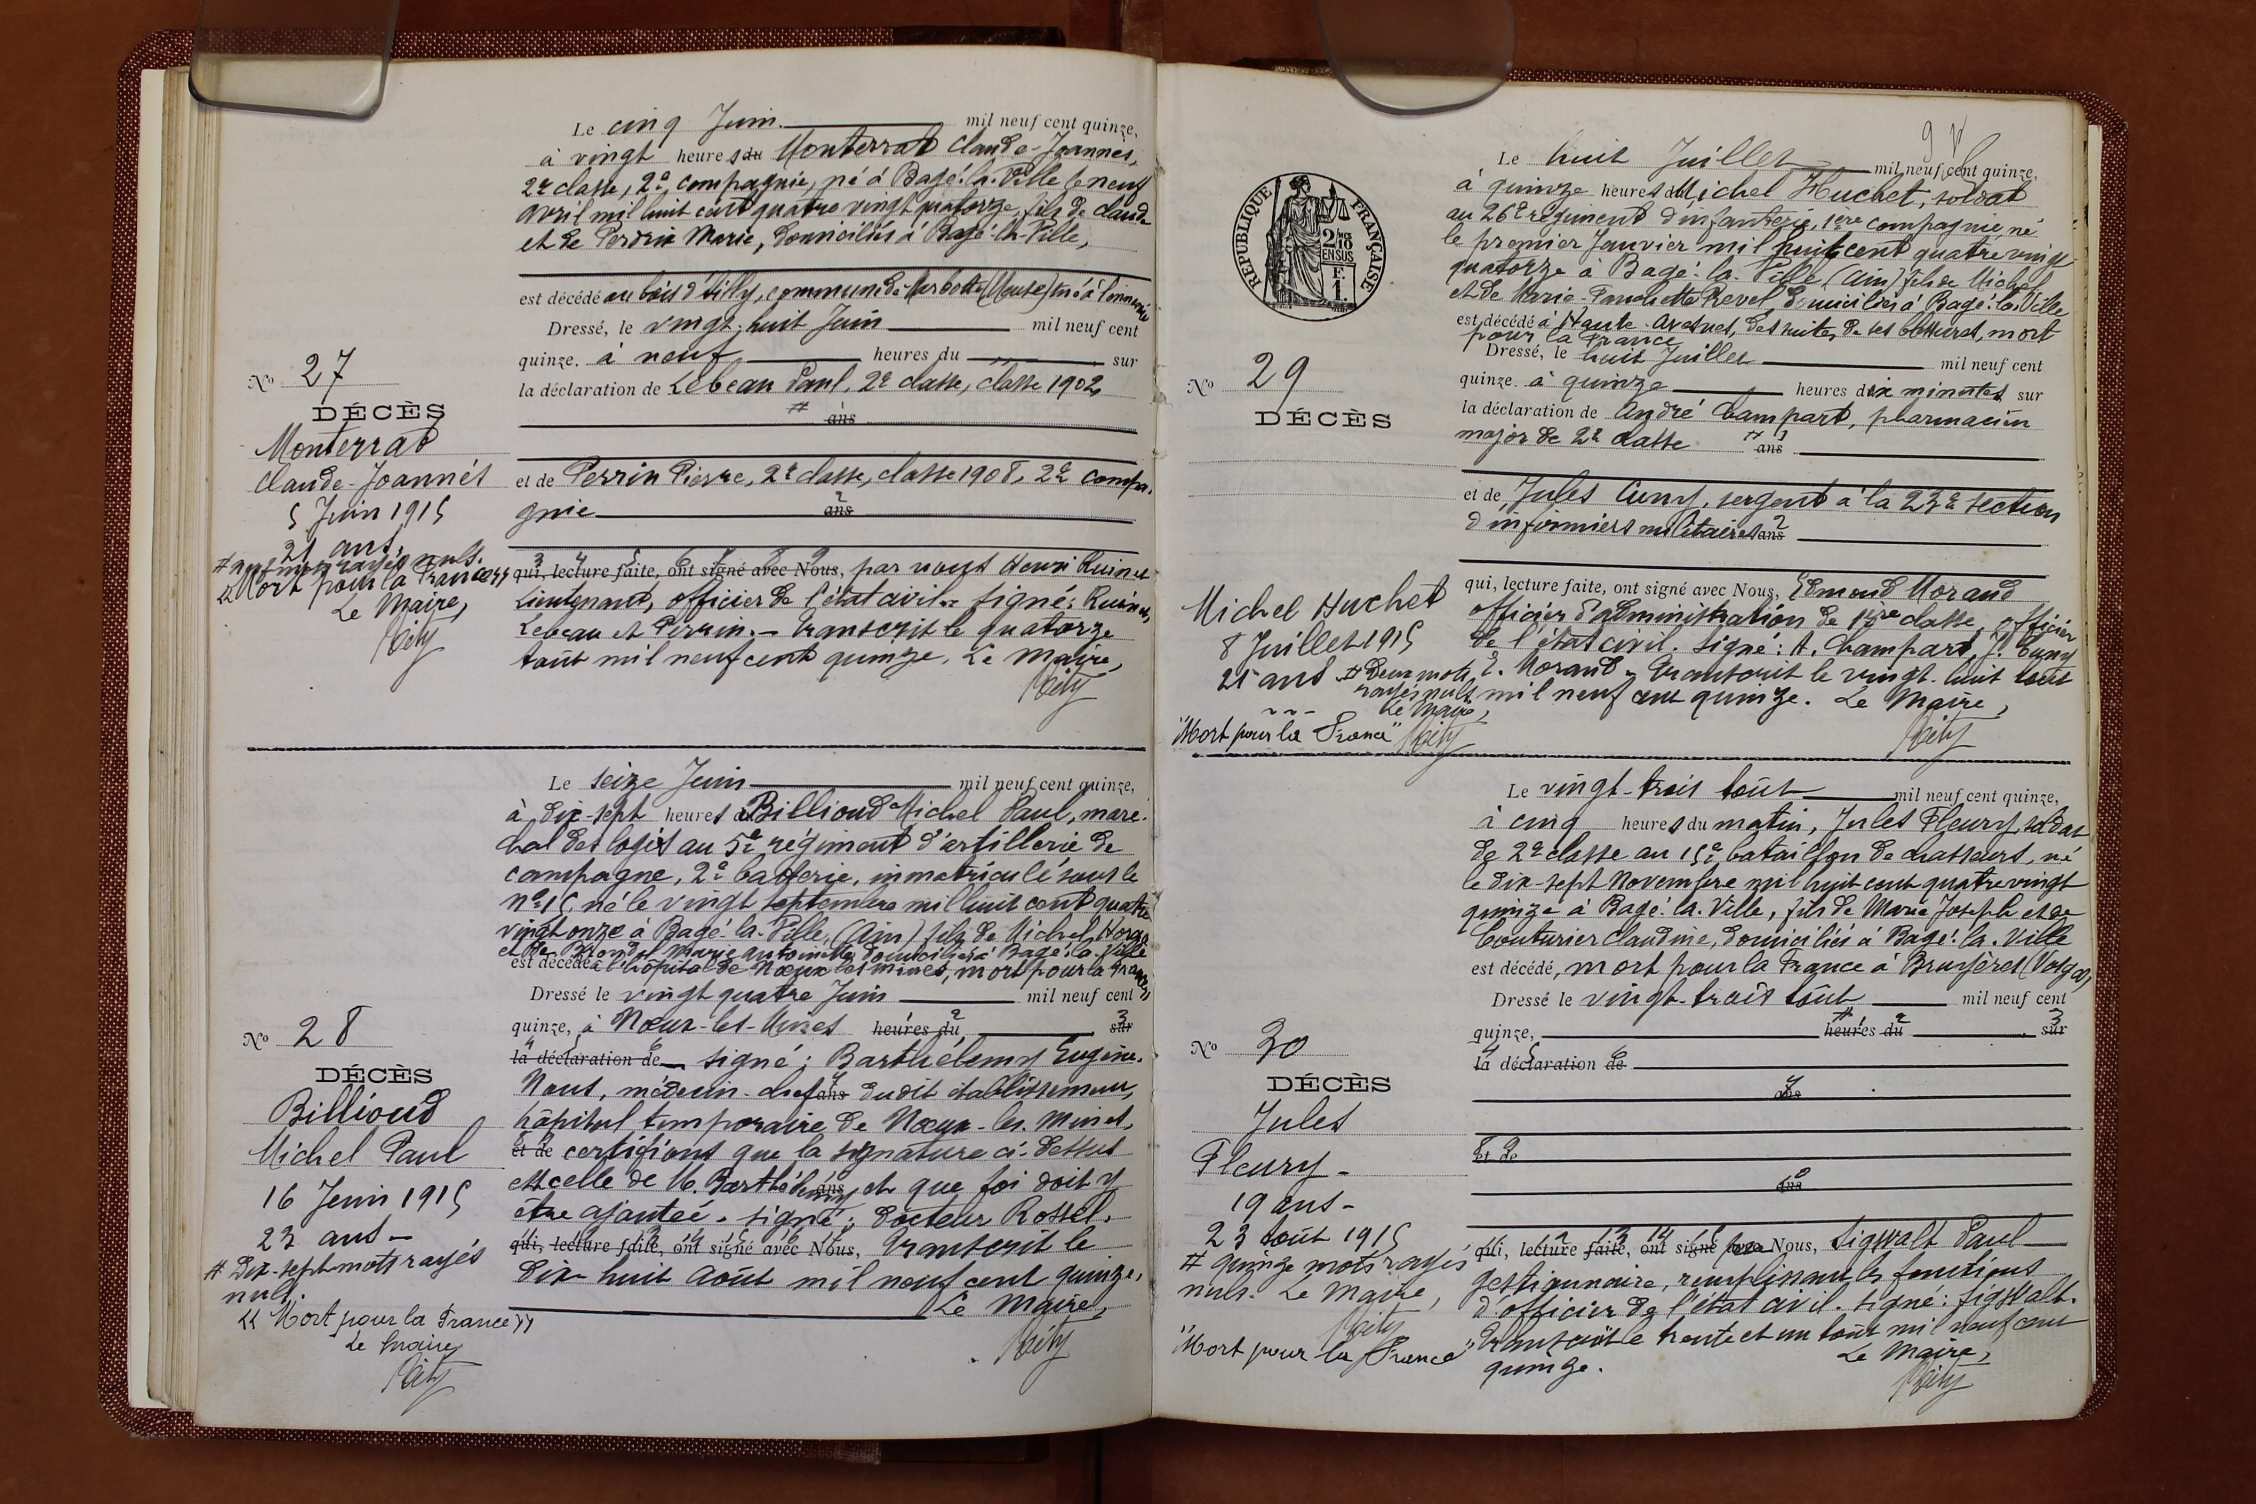 Le cinq Juin mil neuf cent quinze,
à vingt heures du Monterrat Claude-Joannès,
2e classe, 2e compagnie, né à Bagé-la-Ville le neuf
avril mil huit cent quatre vingt quatorze, fils de Claude
et de Perdrix Marie, domiciliés à Bagé-la-Ville,
est décédé au bois d'Ailly, commune de (Meuse) tué à l'ennemi
Dressé, le vingt-huit Juin mil neuf cent
quinze. à neuf heures du sur
la déclaration de Lebeau Paul, 2e classe, classe 1902
# ans
et de Perrin Pierre, 2e classe, classe 1908, 2e compa-
gnie ans
qui, lecture faite, ont signé avec Nous, par nous Henri Ruinet
Lieutenant, officier de l'état civil. Signé: Ruinet,
Lebeau et Perrin. - Transcrit le quatorze
août mil neuf cent quinze. Le Maire,
No 27
DÉCÈS
Monterrat
Claude-Joannès
5 Juin 1915
21 ans.
# neuf mots rayés nuls.
"Mort pour la France"
Le Maire,
Le seize Juin mil neuf cent quinze,
à dix-sept heures Billioud Michel Paul, maré-
chal des logis au 5e régiment d'artillerie de
campagne, 2e batterie, immatriculé sous le
no 15, né le vingt septembre mil huit cent quatre
vingt onze à Bagé-la-Ville, (Ain) fils de Michel
et de Marie Antoinette domiciliés à Bagé-la-Ville
est décédé à l'hôpital de Nœux les mines, mort pour la France
Dressé le vingt quatre Juin mil neuf cent
quinze, à Nœux-les-Mines heures du sur
la déclaration de signé: Barthélemy Eugène.
Nous, médecin-chef ans dudit établissement,
hôpital temporaire de Nœux-les-Mines,
et de certifions que la signature ci-dessus
est celle de M. Barthélemy ans et que foi doit y
être ajoutée. signé: docteur Rossel.
qui, lecture faite, ont signé avec Nous, Transcrit le
dix-huit août mil neuf cent quinze,
Le Maire,
No 28
DÉCÈS
Billioud
Michel Paul
16 Juin 1915
23 ans -
# Dix-sept mots rayés
nuls.
"Mort pour la France"
Le Maire
REPUBLIQUE FRANÇAISE
2/10 EN SUS
Le huit Juillet mil neuf cent quinze,
à quinze heures du Michel Huchet, soldat
au 26e régiment d'infanterie, 1ère compagnie, né
le premier Janvier mil huit cent quatre vingt
quatorze à Bagé-la-Ville (Ain) fils de Michel
et de Marie Revel, domiciliés à Bagé-la-Ville
est décédé à Haute-Avesnes, des suites de ses blessures, mort
pour la France
Dressé, le huit Juillet mil neuf cent
quinze. à quinze heures dix minutes sur
la déclaration de André Champart, pharmacien
major de 2e classe # ans
et de Jules Cuny, sergent à la 23e section
d'infirmiers militaires ans
qui, lecture faite, ont signé avec Nous, Edmond Morand
officier d'administration de 1ère classe, officier
de l'état civil. Signé: A. Champart, J. Cuny
E. Morand. Transcrit le vingt-huit août
mil neuf cent quinze. Le Maire,
No 29
DÉCÈS
Michel Huchet
8 Juillet 1915
21 ans
# Deux mots
rayés nuls
Le Maire,
"Mort pour la France"
Le vingt-trois août mil neuf cent quinze,
à cinq heures du matin, Jules Fleury, soldat
de 2e classe au 15e bataillon de chasseurs, né
le dix-sept Novembre mil huit cent quatre vingt
quinze à Bagé-la-Ville, fils de Marie Joseph et de
Couturier Claudine, domiciliés à Bagé-la-Ville
est décédé, mort pour la France à Bruyères (Vosges)
Dressé le vingt-trois août mil neuf cent
quinze, heures du sur
la déclaration de
ans
et de
ans
qui, lecture faite, ont signé avec Nous, Sigwalt Paul
gestionnaire, remplissant les fonctions
d'officier de l'état civil. signé: Sigwalt.
Transcrit le trente et un août mil neuf cent
quinze. Le Maire,
No 30
DÉCÈS
Jules
Fleury -
19 ans -
23 août 1915
# quinze mots rayés
nuls. Le Maire,
"Mort pour la France"